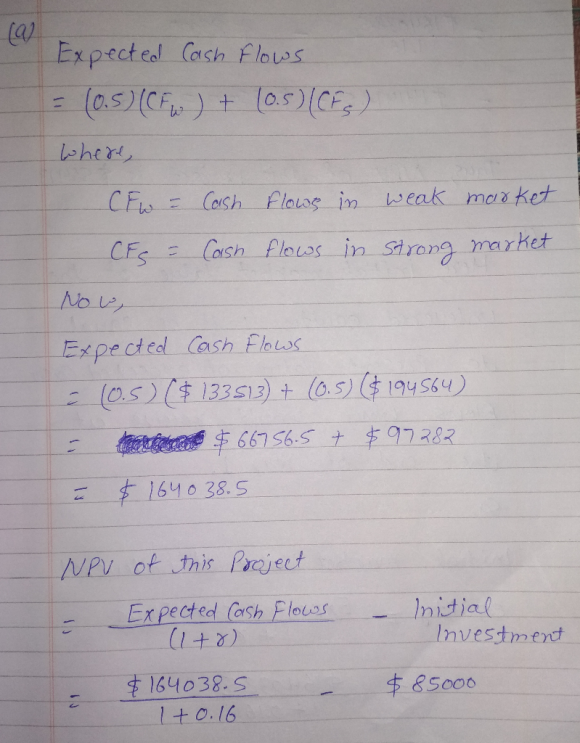 (a)
Expected Cash Flows
= (0.5)(CFw) + (0.5)(CFs)
Where,
CFw = Cash flows in weak market
CFs = Cash flows in strong market
Now,
Expected Cash Flows
= (0.5)($133513) + (0.5)($194564)
= $66756.5 + $97282
= $164038.5
NPV of this Project
= Expected Cash Flows / (1+r) - Initial Investment
= $164038.5 / 1+0.16 - $85000